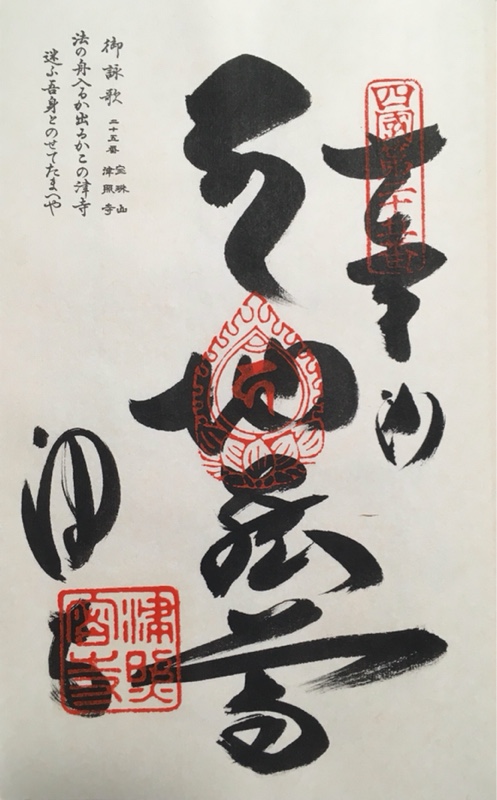 四國第二十五番
奉
地蔵尊
津
御詠歌 二十五番 宝珠山 津照寺
法の舟入るか出るかこの津寺
迷ふ吾身とのせてたまへや